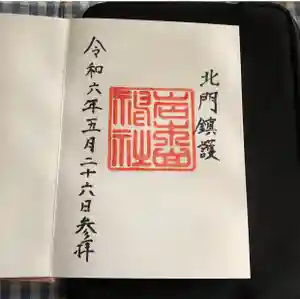 北門鎮護
岩木山
神社
令和六年五月二十六日参拝